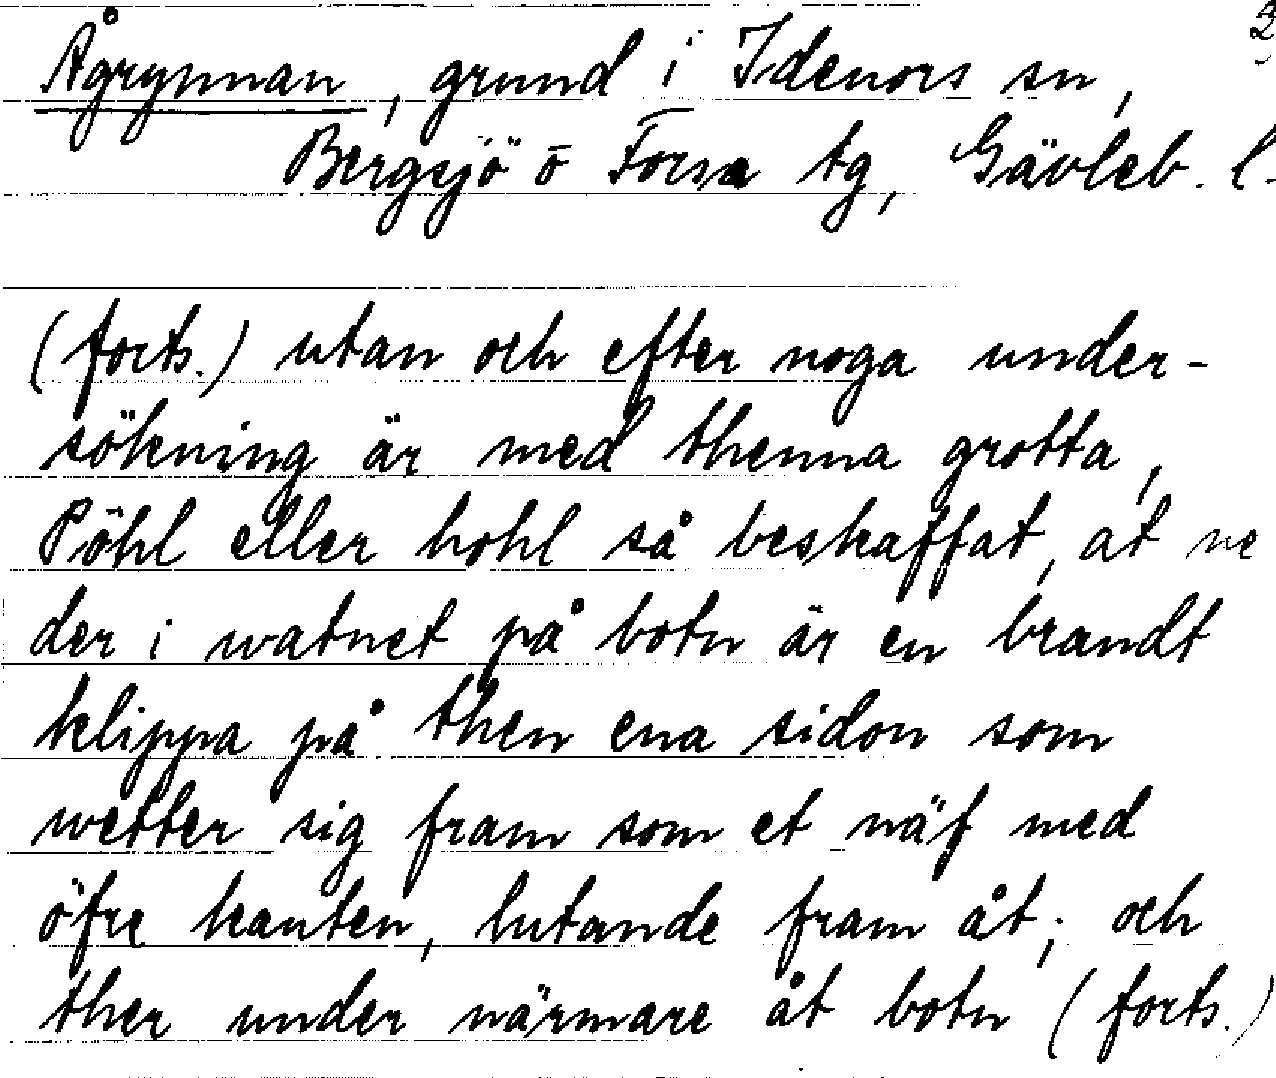 3
Ågrynnan, grund i Idenors sn,
Bergsjö o Forsa tg, Gävleb. l.
(forts.) utan och efter noga under-
sökning är med thenna grotta,
Pöhl eller hohl så beskaffat, at ne
der i watnet på botn är en brandt
klippa på then ena sidon som
wetter sig fram som et näf med
öfre kanten, lutande fram åt; och
ther under närmare åt botn (forts.)